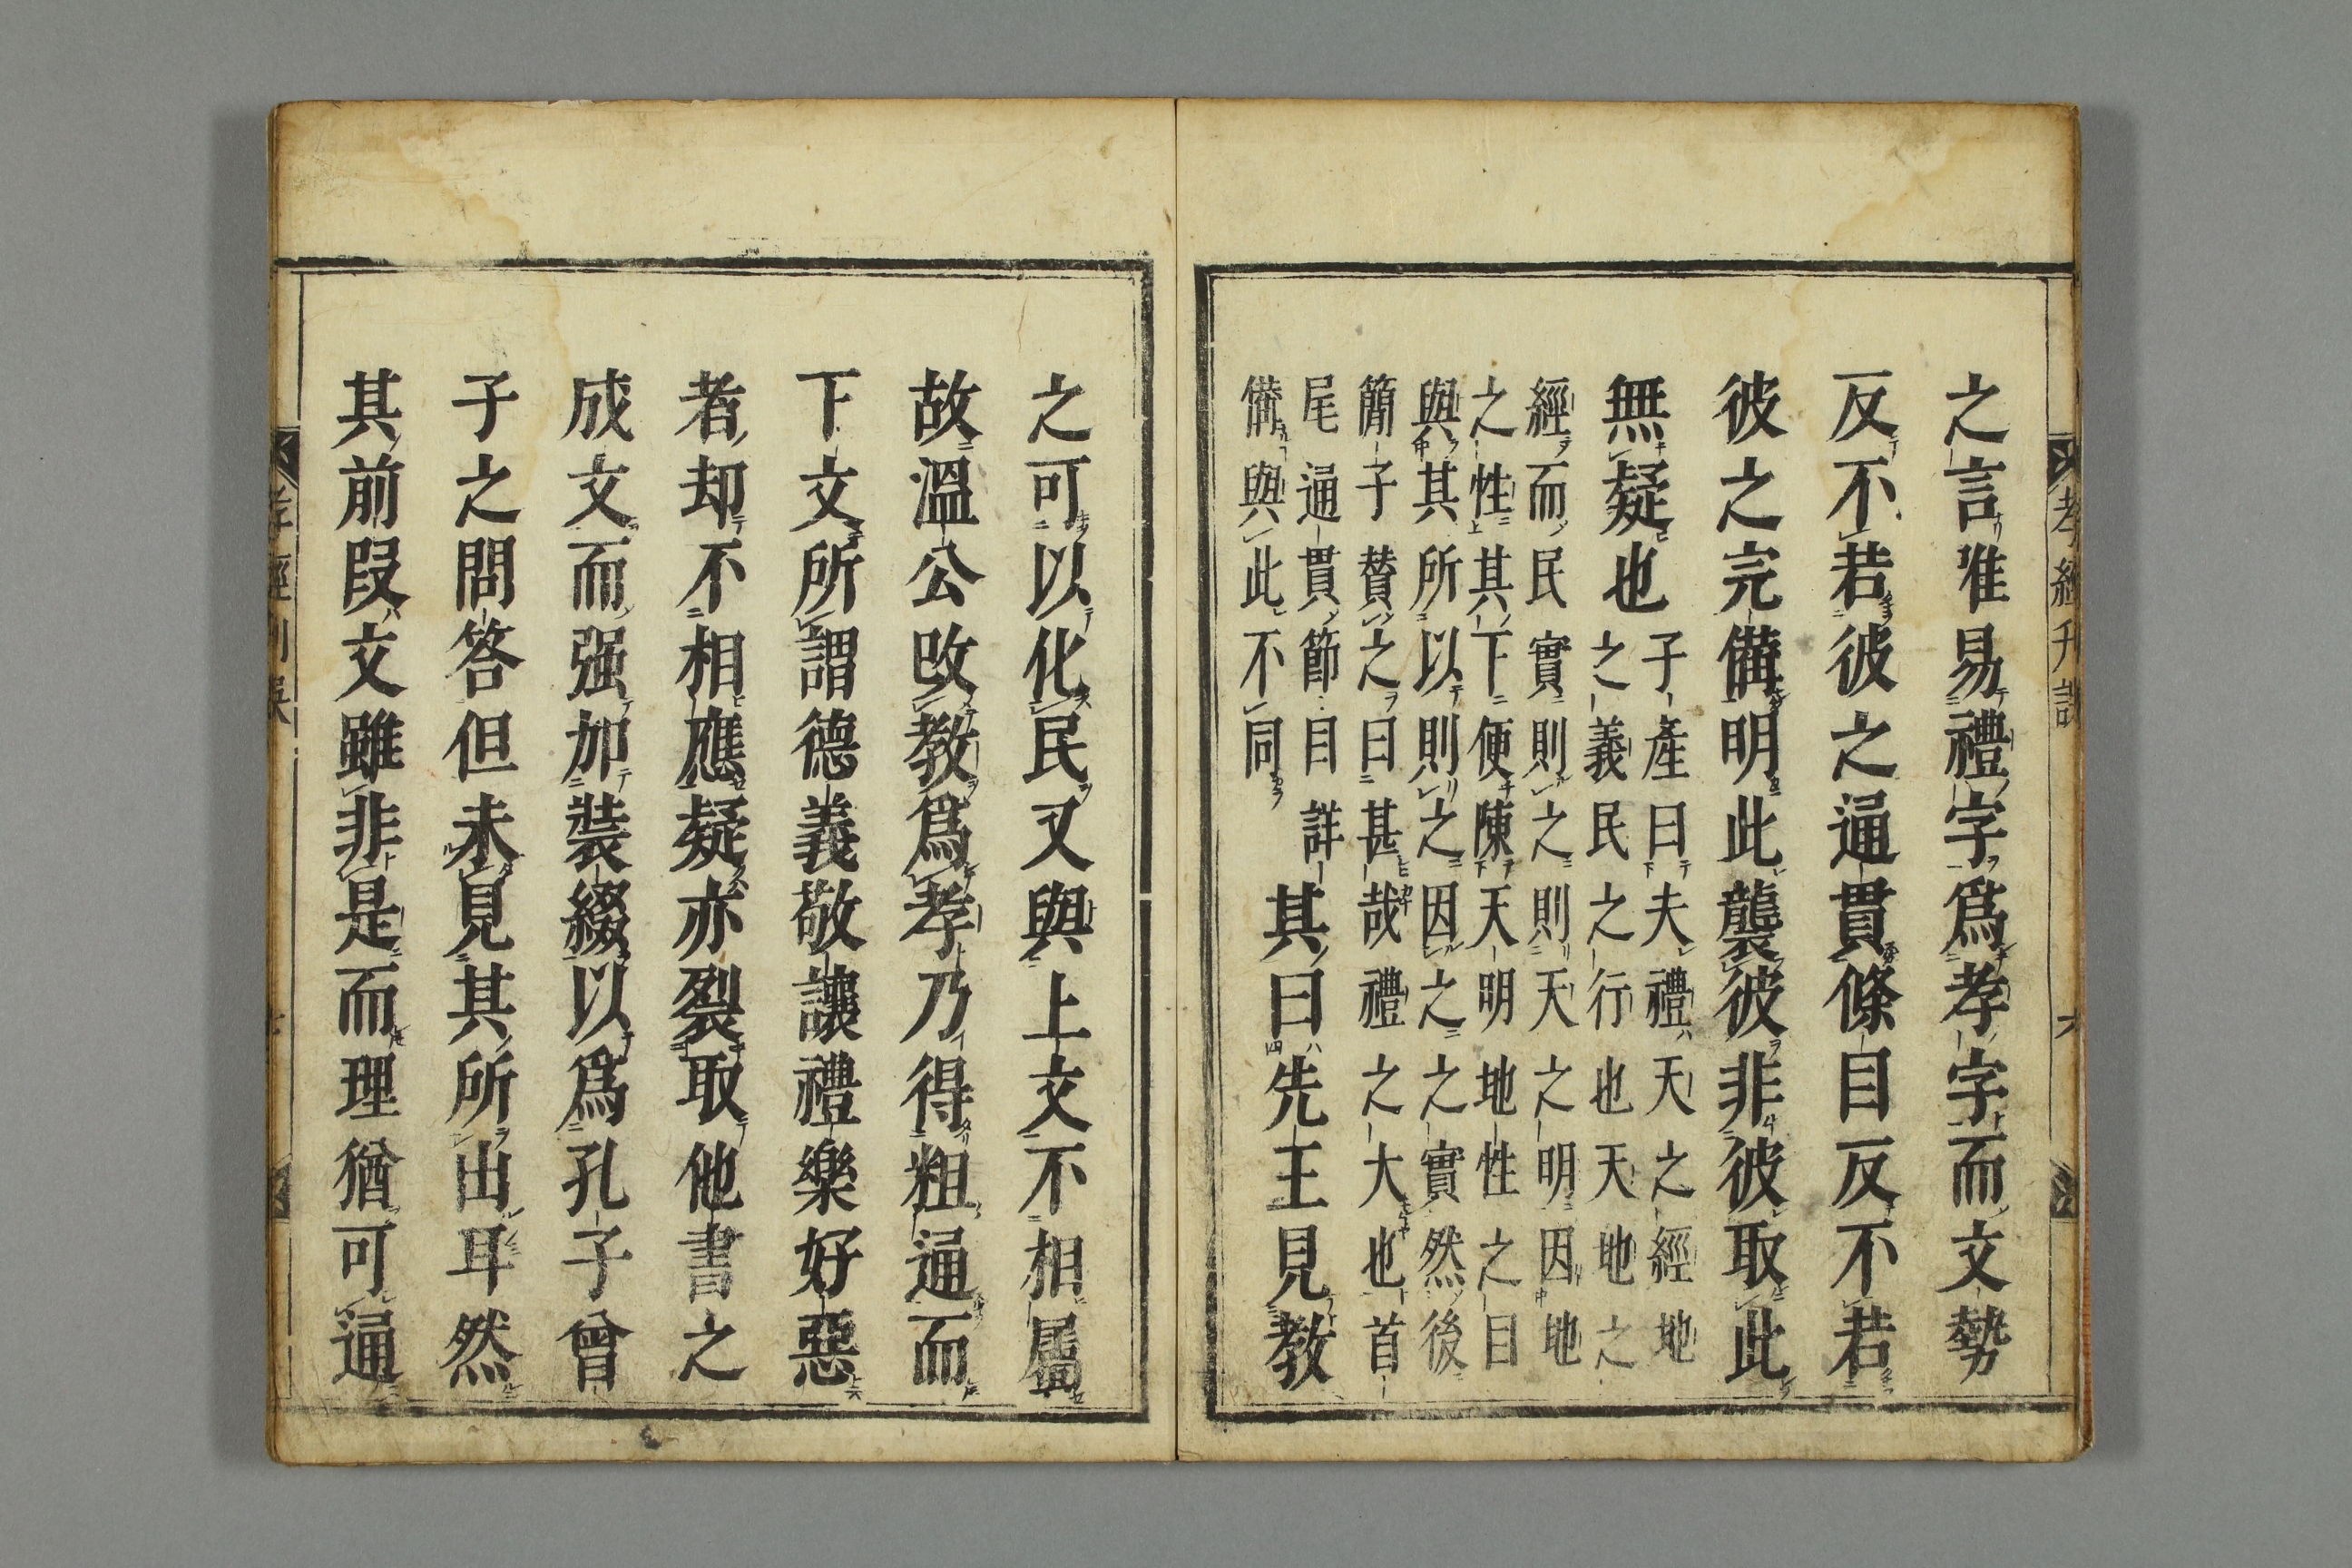 之言唯易禮字爲孝字而文勢
反不若彼之通貫條目反不若
彼之完備明此襲彼非彼取此
無疑也
子產曰夫禮天之經地
之義民之行也天地之
經而民實則之則天之明因地
之性其下便陳天明地性之目
與其所以則之因之之實然後
簡子贊之曰甚哉禮之大也首
尾通貫節目詳
備與此不同
其曰先王見教
之可以化民又與上文不相屬
故溫公改教爲孝乃得粗通而
下文所謂德義敬讓禮樂好惡
者却不相應疑亦裂取他書之
成文而强加裝綴以爲孔子曾
子之問答但未見其所出耳然
其前段文雖非是而理猶可通